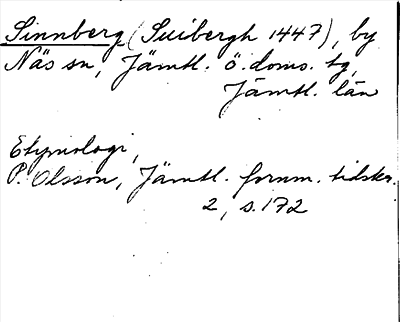 Sinnberg (Suibergh 1447), by
Näs sn, Jämtl. ö. doms. tg,
Jämtl. län
Etymologi,
P. Olsson, Jämtl. fornm. tidskr.
2, s. 172